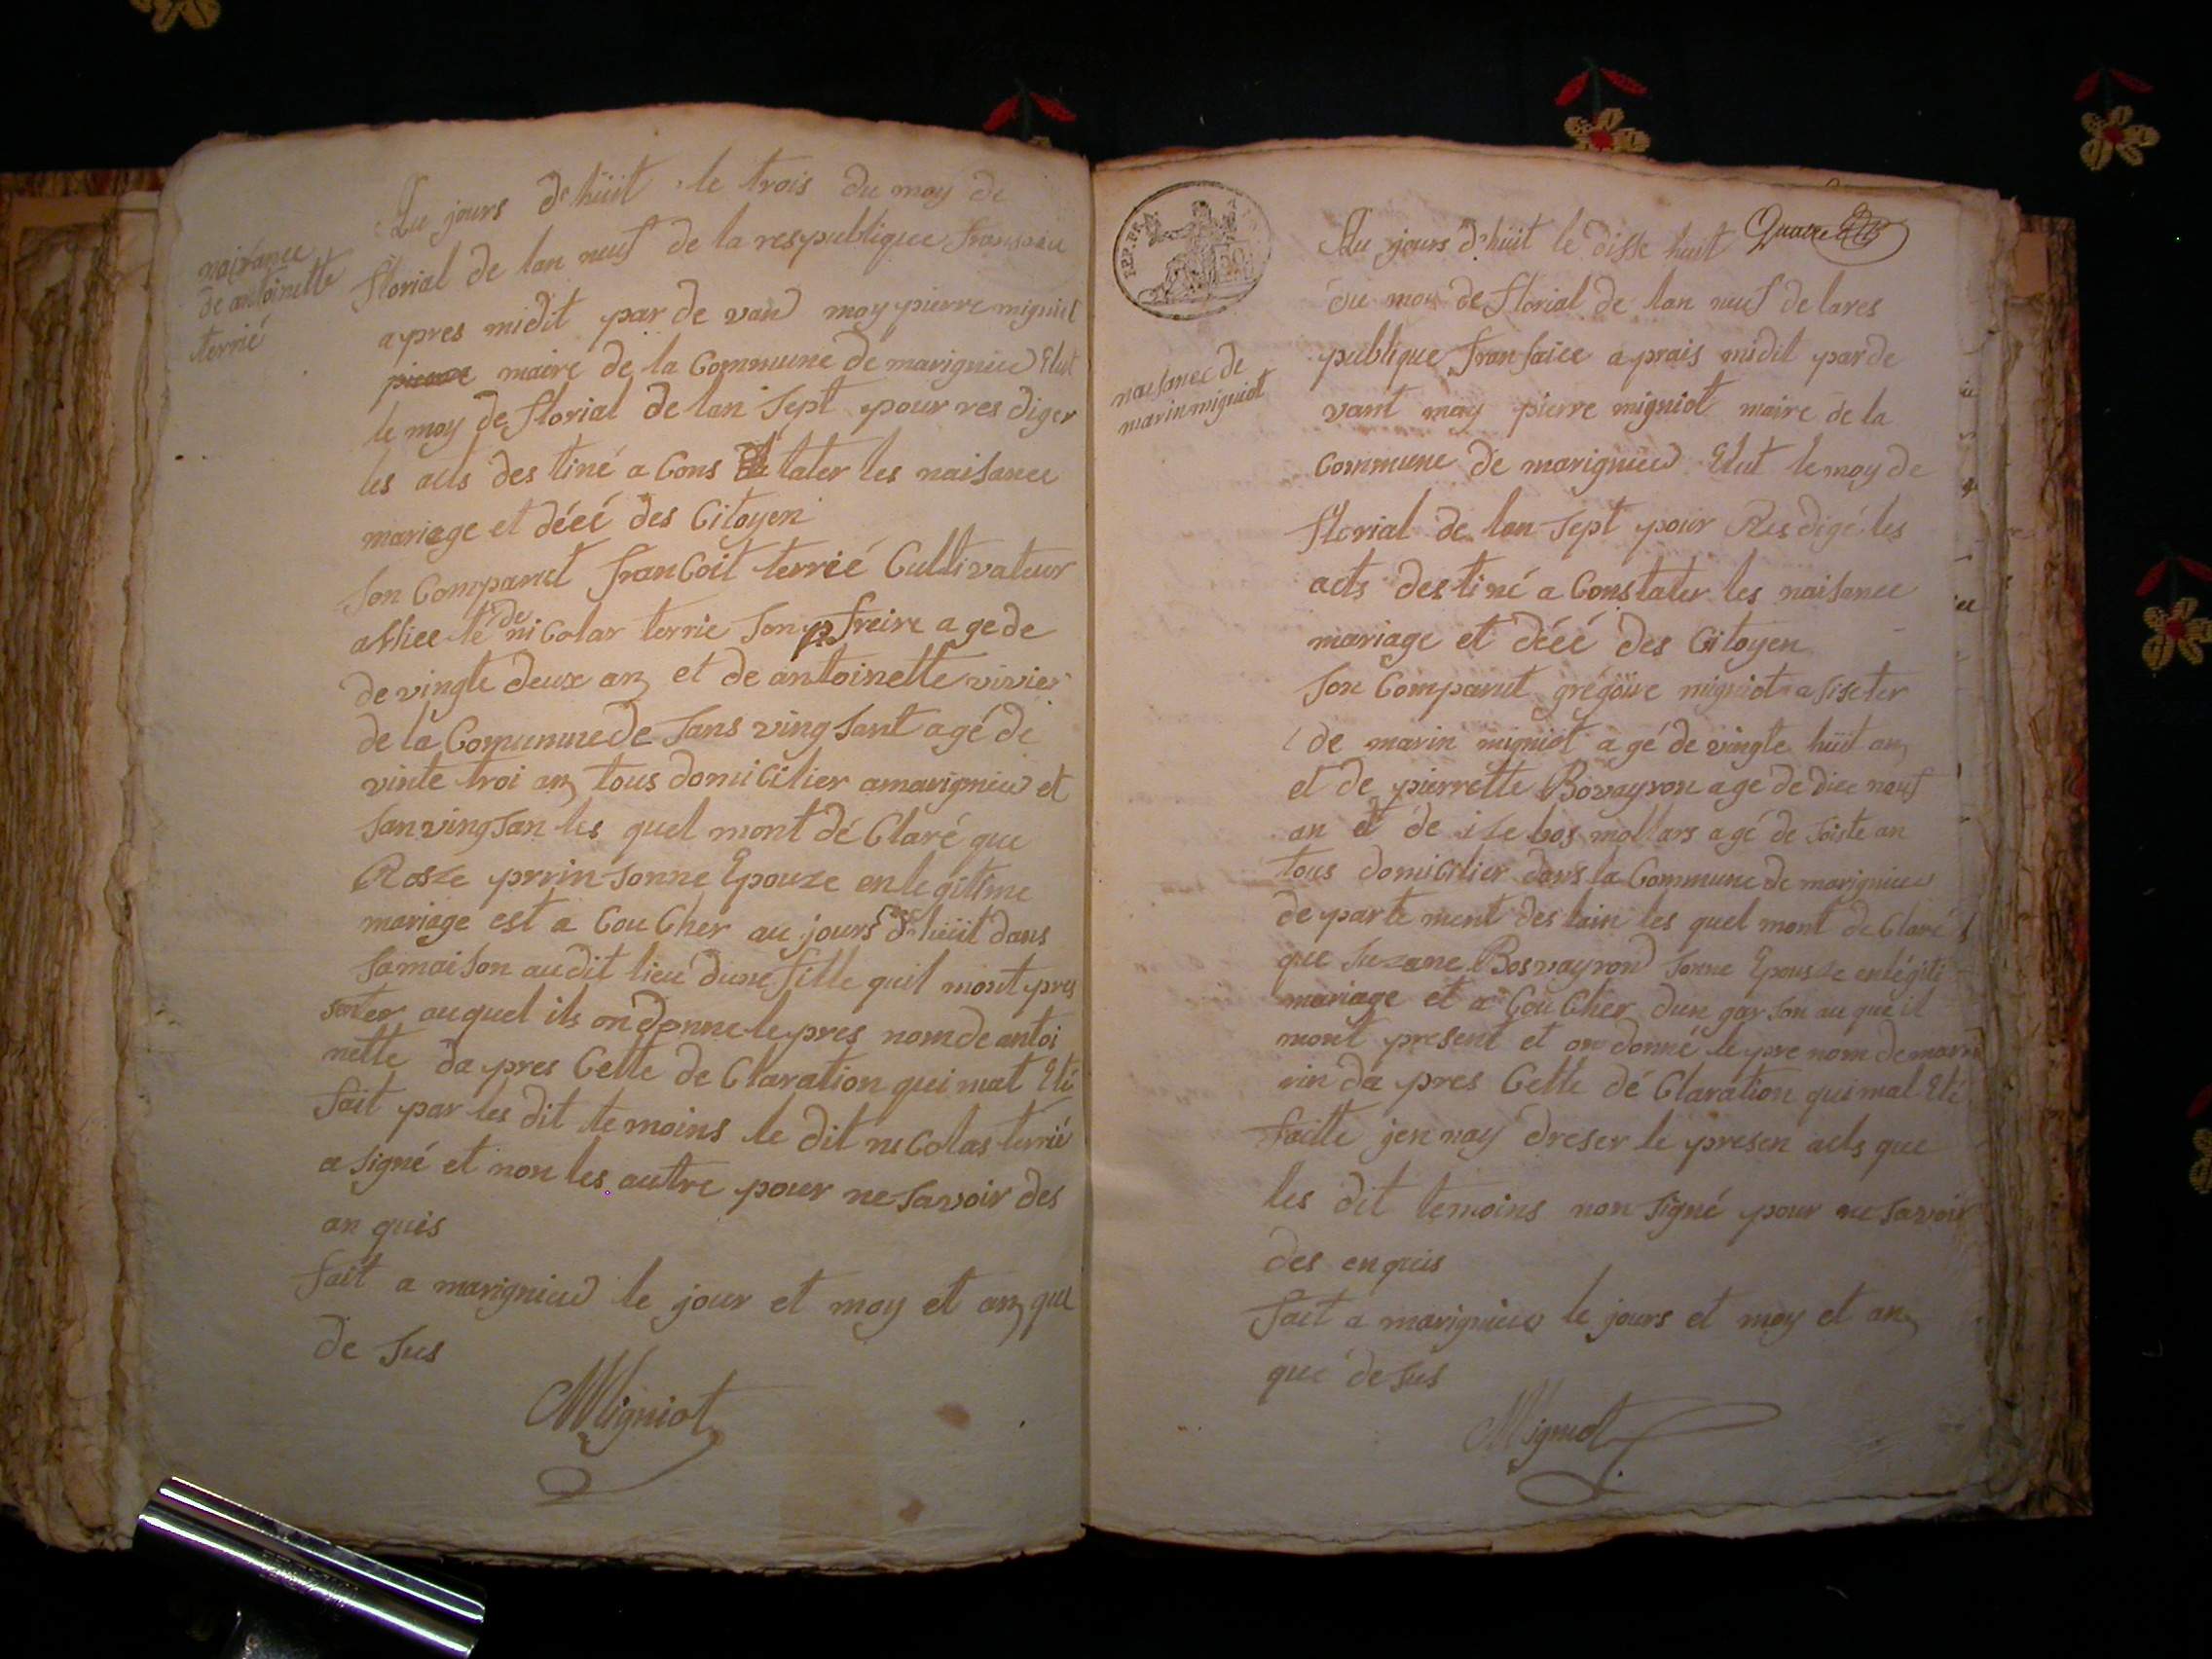 naisance
de antoinette
terrié
Au jours d'huit le trois du moy de
florial de lan neuf de la respublique
apres midit par de van moy pierre migniot
maire de la Commune de marignieu Elut
le moy de florial de lan Sept pour res diger
les acts des tiné a Cons tater les naisance
mariage et déeé des Citoyen
Son Comparut franCoit terrié Cultivateur
de niColas terrie Son freire a gede
de vingte deux an et de antoinette vivier
de la Commune de Sans ving Sant agé de
vinte troi an tous domiCilier amarignieu et
San ving San les quel mont dé Claré que
Rosze prrin Sonne Epouze en le gittime
mariage est a Cou Cher au jours d'huit dans
Samaison audit lieu dune fille quil mont pres
senter auquel ils on donne le pres nom de antoi
nette da pres Cette de Claration qui mat Eté
fait par les dit temoins le dit niColas terrié
a Signé et non les autre pour ne Savoir des
an quis
fait a marignieu le jour et moy et an que
de Sus
Migniot
REP. FRA.
naisance de
marin migniot
Au jours d'huit le disse huit
du moy de florial de lan neuf de la res
publique franfaice a prais midit par de
vant moy pierre migniot maire de la
Commune de marignieu Elut le moy de
florial de lan Sept pour Res digé les
acts des tiné a Constater les naisance
mariage et déeé des Citoyen
Son Comparut grégoire migniot a sister
de marin migniot a gé de vingte huit an
et de pierrette Bovayron age de dice neuf
an et de mollars a gé de Soiste an
tous domiCilier dans la Commune de marignieu
de parte ment des lain les quel mont de Claré
que Suzane Bosvayron Sonne Epousze en légiti
mariage et a Cou Cher dun gar Son au quel
mont present et on donné le pre nom de mari
rin da pres Cette dé Claration qui mat Eté
faitte jen nay dreser le presen acts que
les dit temoins non Signé pour ne Savoir
des en quis
fait a marignieu le jours et moy et an
que de Sus
Migniot